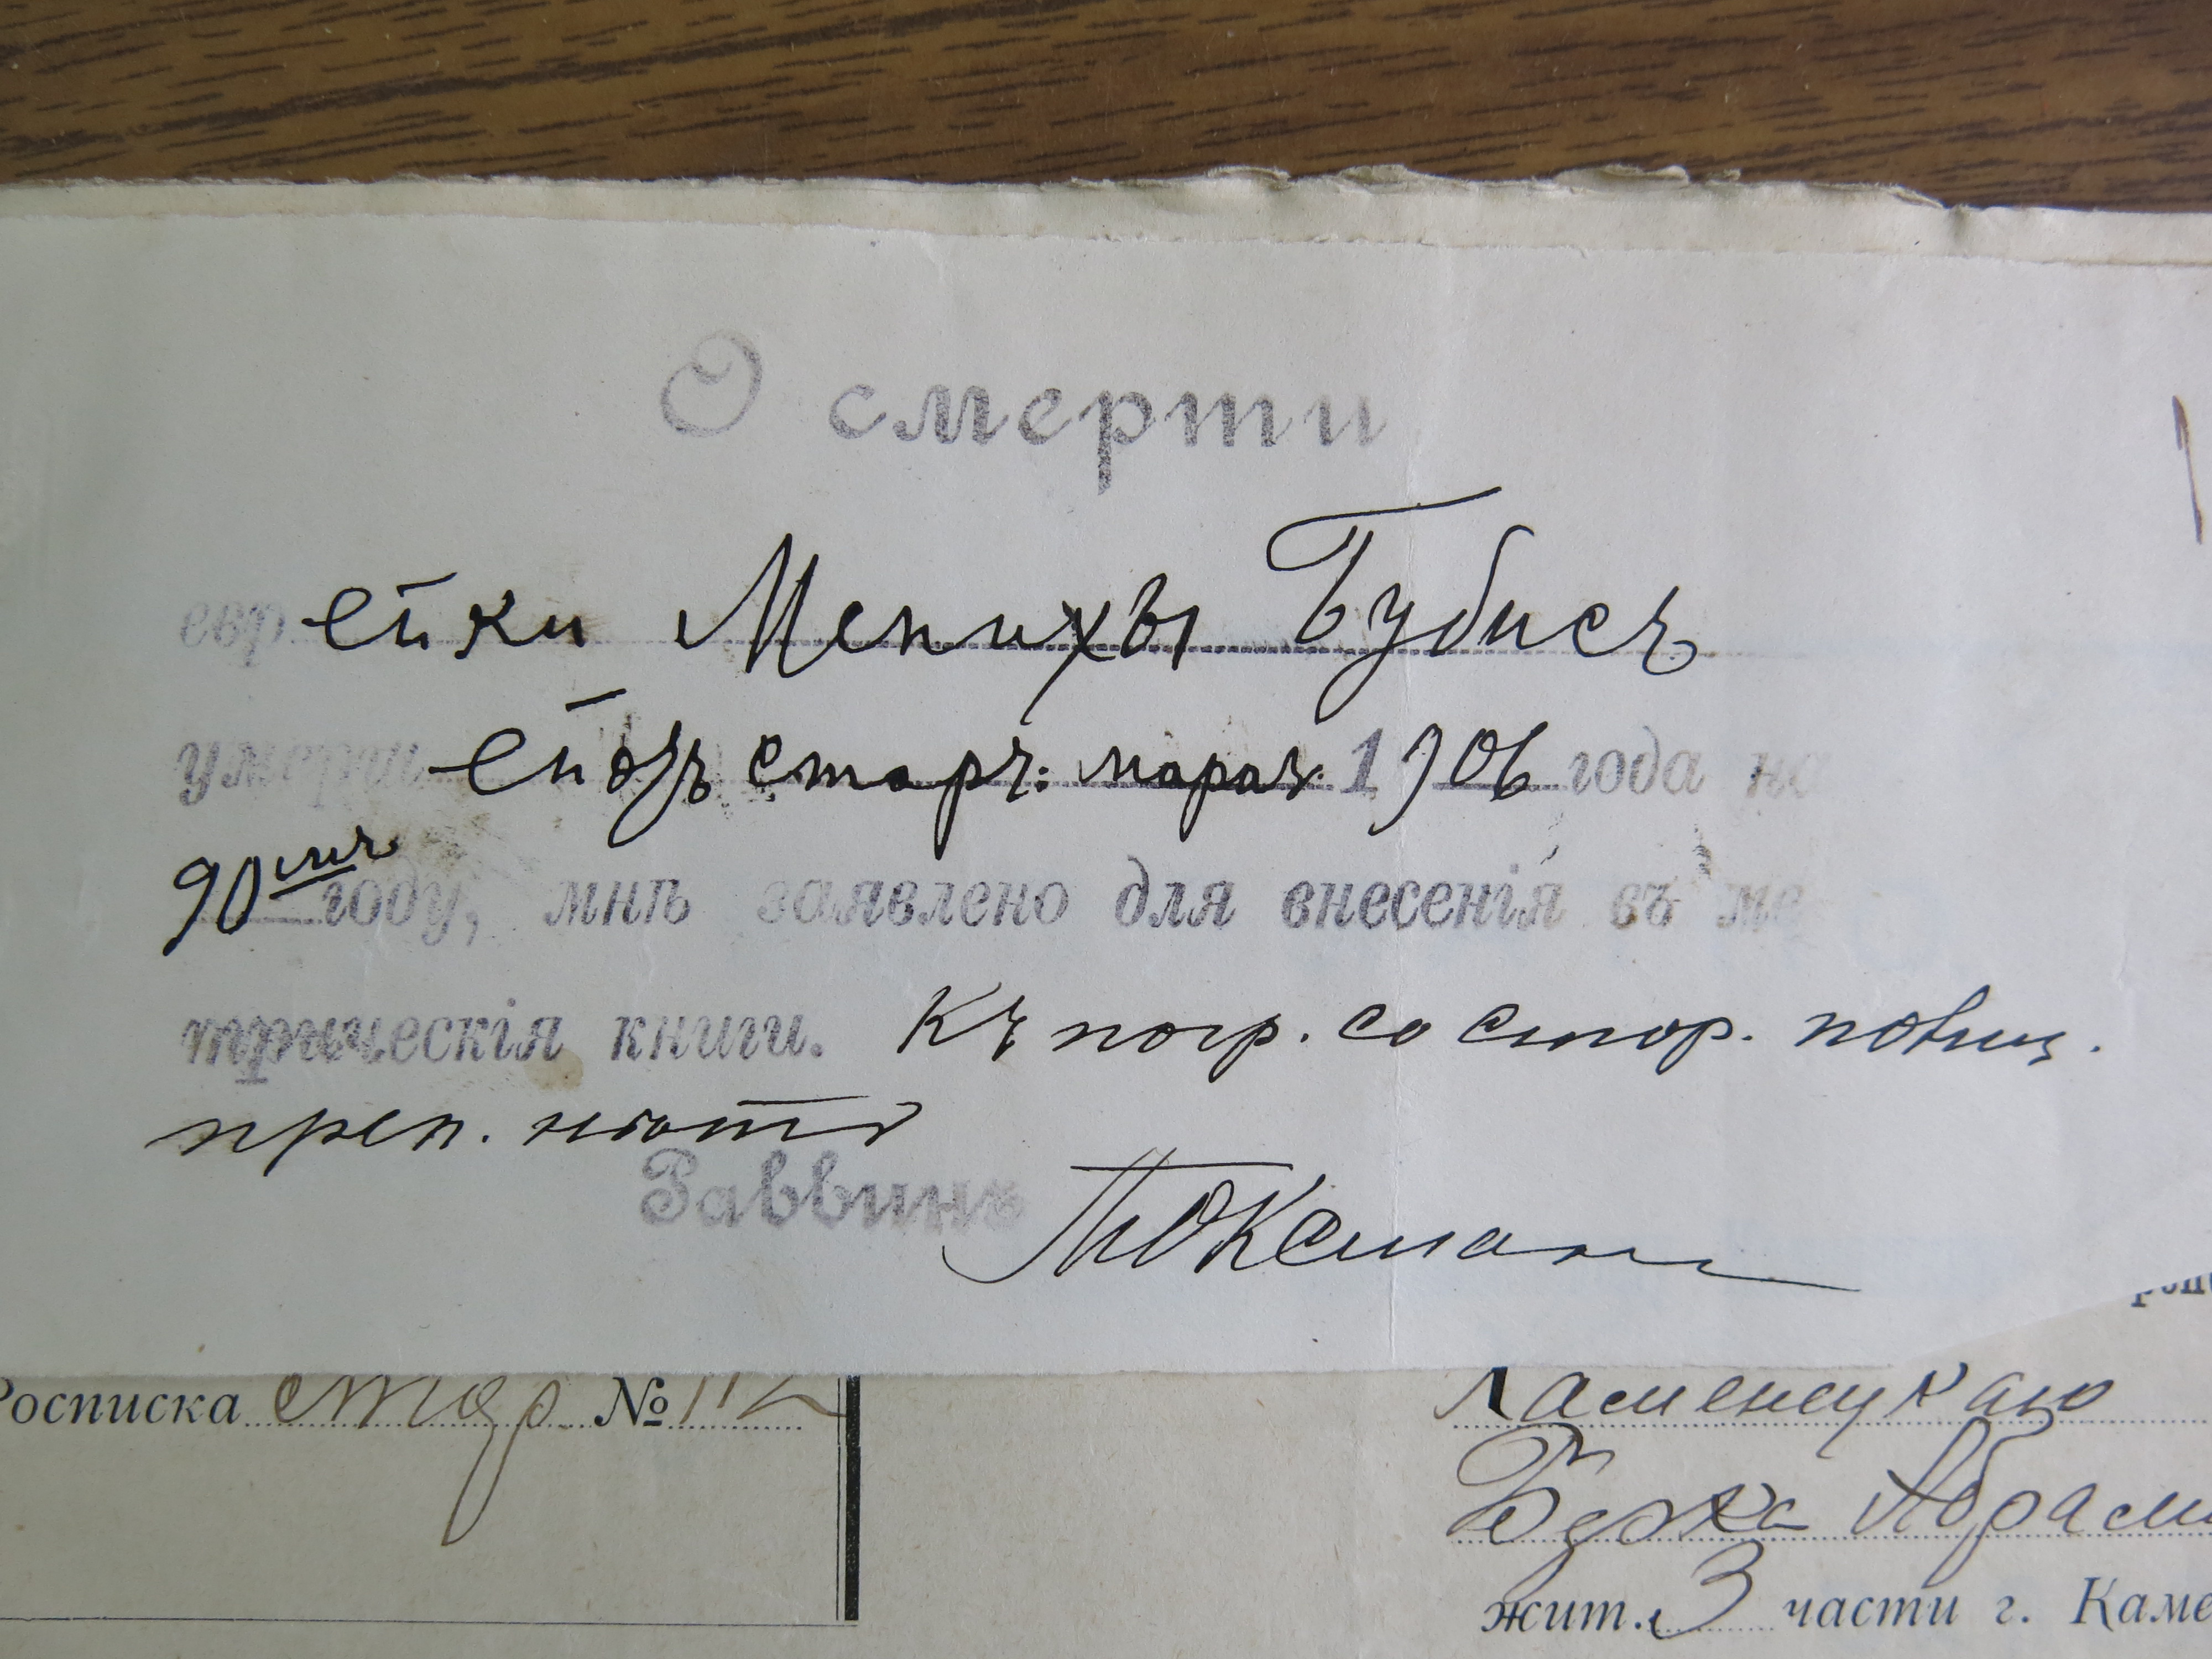 О смерти
еврейки Менихи Бубисъ
умершей отъ старч: мараз. 1906 года на
90мъ году, мнѣ заявлено для внесенія въ ме
трическія книги. Къ погр. со стор. повит.
преп. нѣтъ
Раввинъ
Росписка стор № 112
Каменецкаю
Берка Абрам
жит. 3 части г. Каме